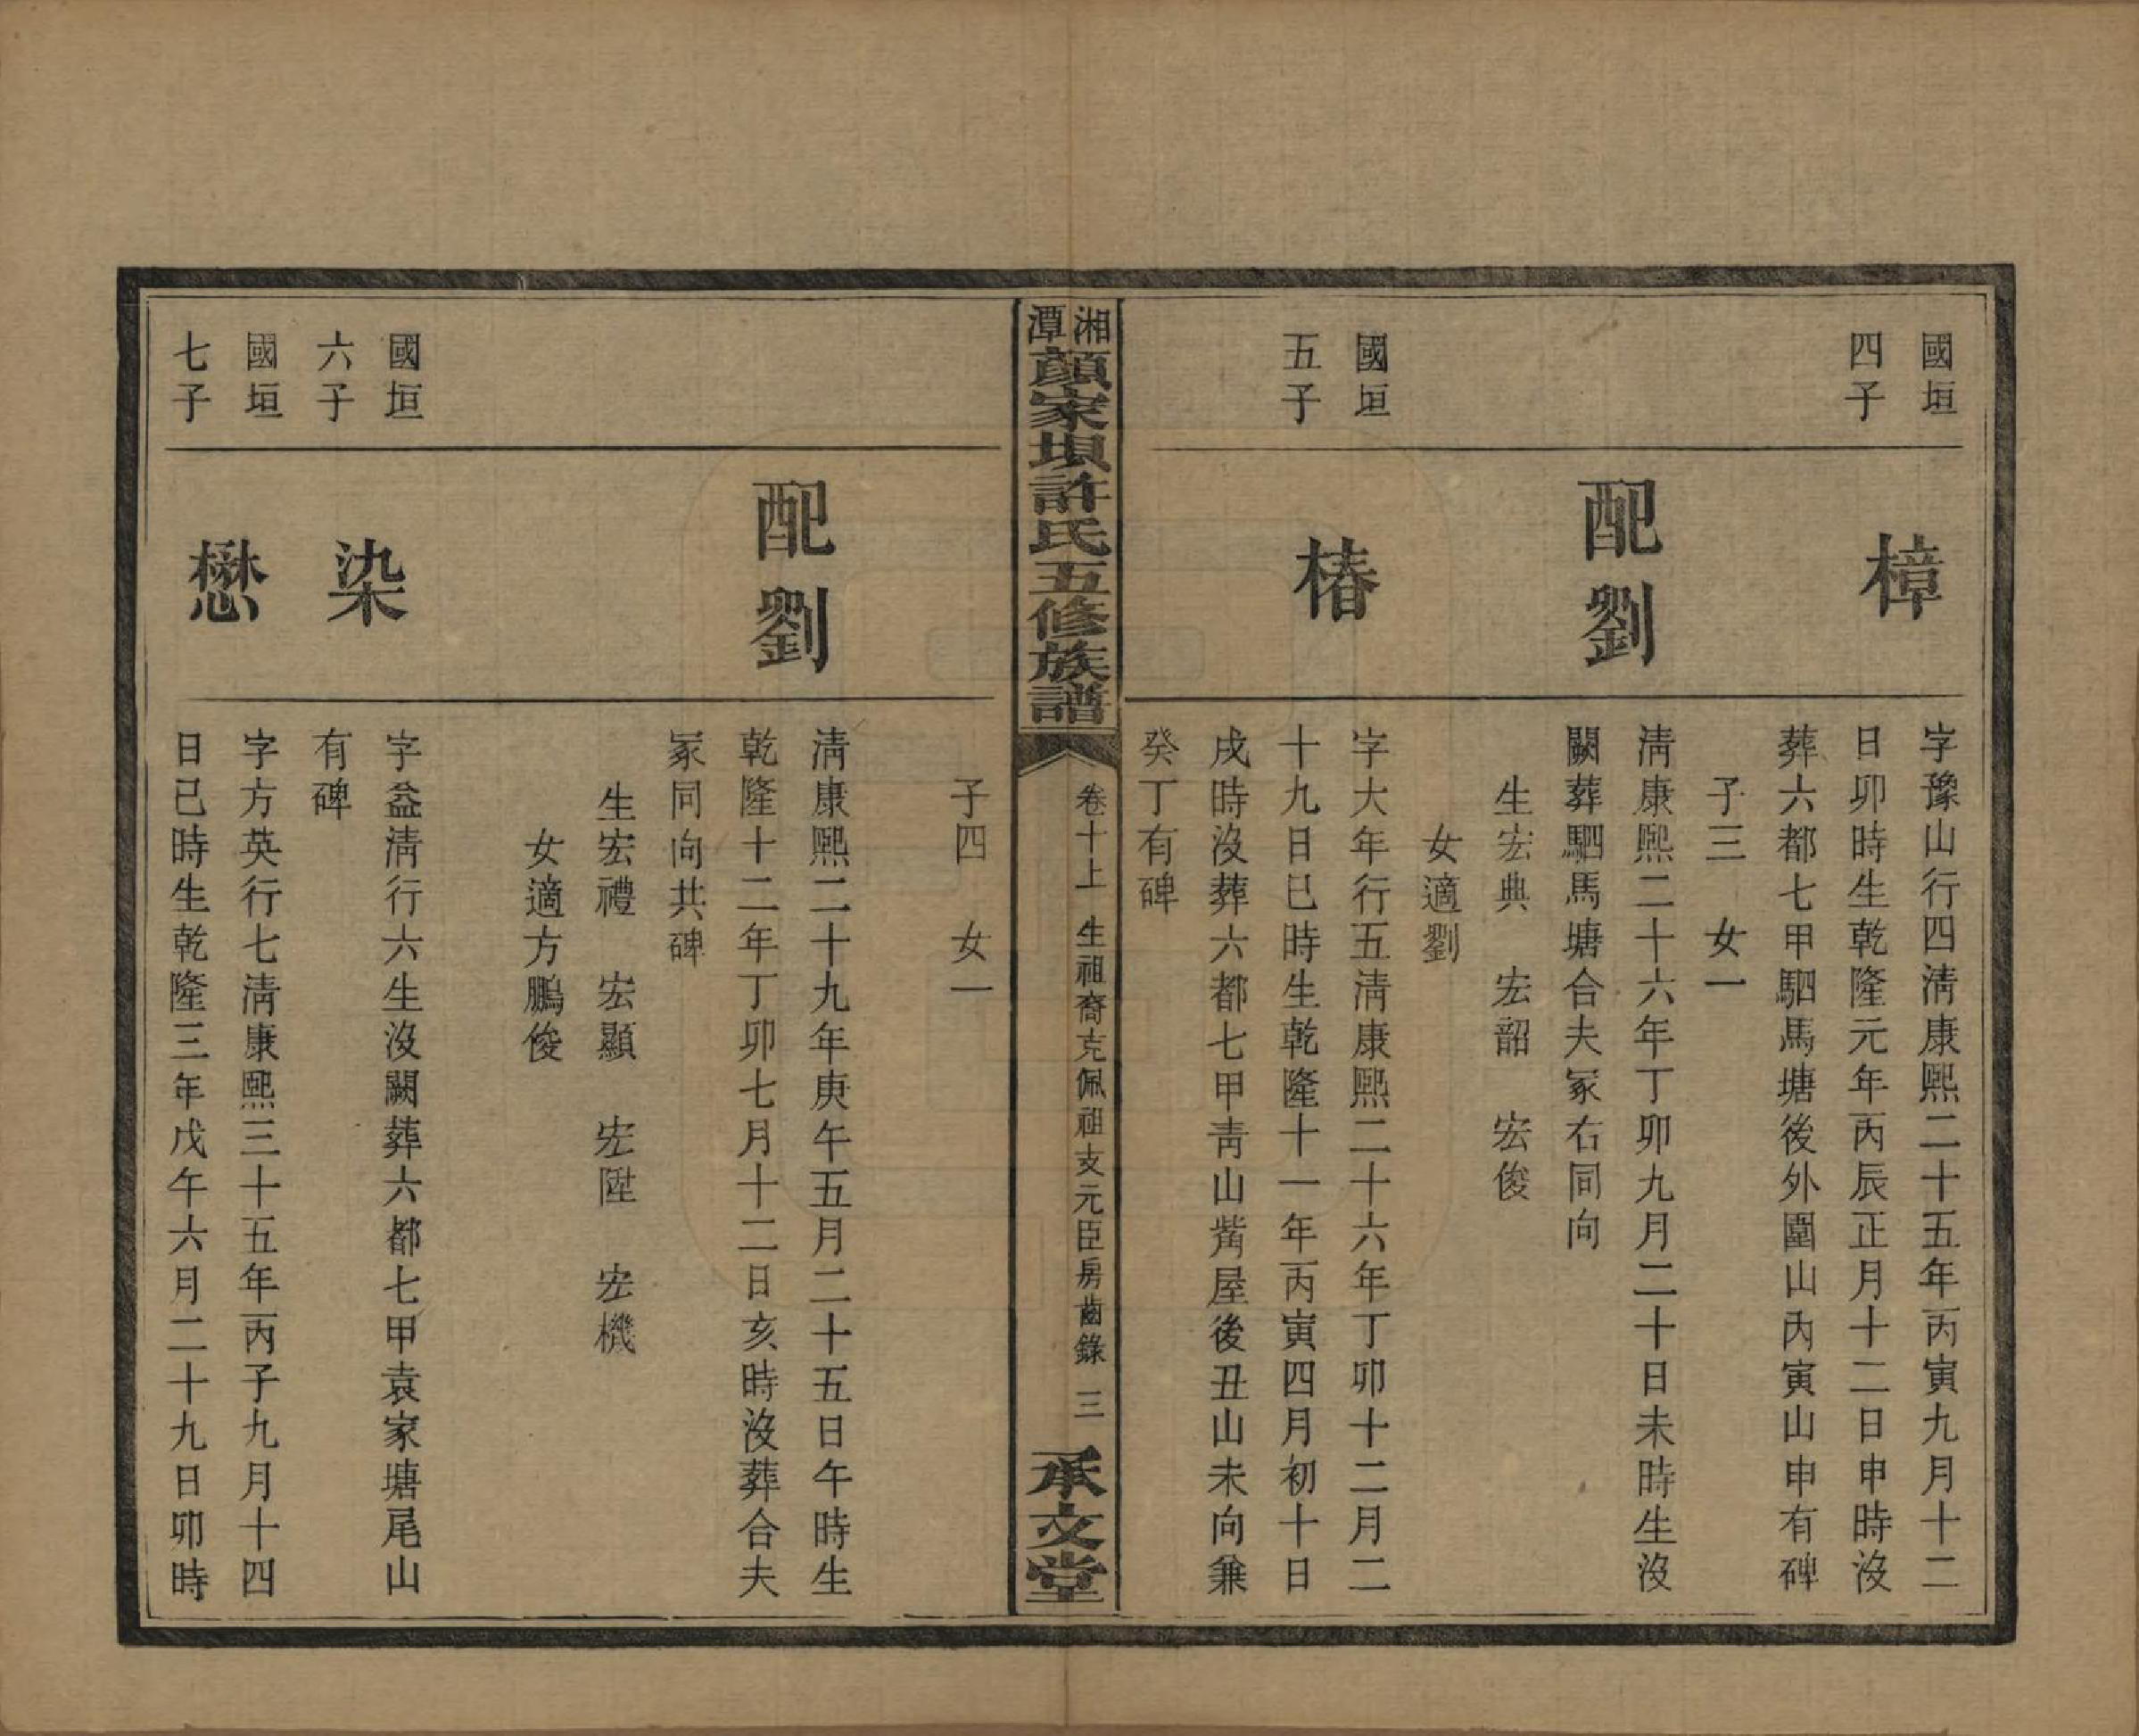 國垣
四子
樟
字豫山行四淸康熙二十五年丙寅九月十二
日卯時生乾隆元年丙辰正月十二日申時沒
葬六都七甲駟馬塘後外圍山內寅山申有碑
子三　女一
配劉
淸康熙二十六年丁卯九月二十日未時生沒
闕葬駟馬塘合夫冢右同向
生宏典　宏韶　宏俊
女適劉
國垣
五子
椿
字大年行五淸康熙二十六年丁卯十二月二
十九日巳時生乾隆十一年丙寅四月初十日
戌時沒葬六都七甲靑山嘴屋後丑山未向兼
癸丁有碑
湘潭顏家垻許氏五修族譜
卷十上　生祖裔克佩祖支元臣房齒錄　三
承文堂
子四　女一
配劉
淸康熙二十九年庚午五月二十五日午時生
乾隆十二年丁卯七月十二日亥時沒葬合夫
冢同向共碑
生宏禮　宏顯　宏陞　宏機
女適方鵬俊
國垣
六子
染
字益淸行六生沒闕葬六都七甲袁家塘尾山
有碑
國垣
七子
懋
字方英行七淸康熙三十五年丙子九月十四
日巳時生乾隆三年戊午六月二十九日卯時